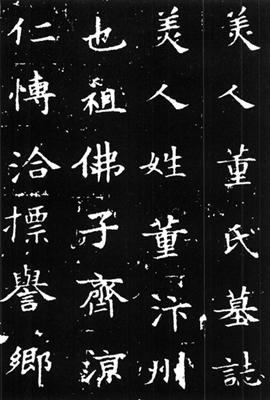 美人董氏墓誌
美人姓董汴州
也祖佛子齊涼
仁慱洽摽譽鄉